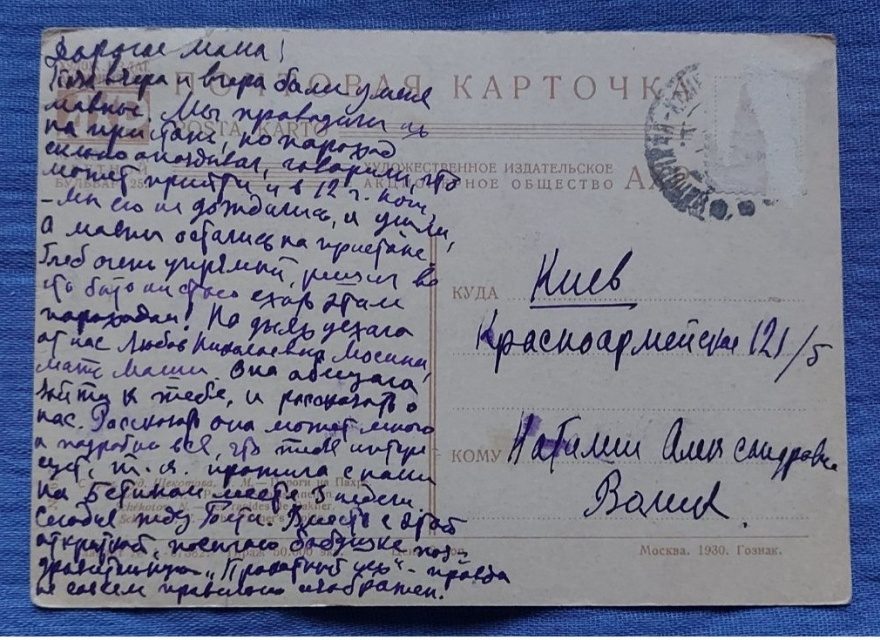 Дорогая мама!
Позавчера и вчера были у меня
мавны. Мы проводили их
на пристань, но пароход
сильно опаздывал, говорили, что
может прийти и в 12 ч. ночи,
- мы его не дождались, и ушли,
а мавны остались на пристане.
Глеб очень упрямый, решил во
что бы то ни стало ехать этим
пароходом! На днях уехала
от нас Любовь Николаевна Мосина,
мать Маши. Она обещала
зайти к тебе, и рассказать о
нас. Рассказать она может много
и подробно всё, что тебя интере
сует, т. к. прожила с нами
на Бетином месте 3 недели
Сегодня жду Вместе с этой
открыткой, посылаю бабушке поз-
дравительную „Прокатный цех" - правда
не совсем правильно изображен.
ПОЧТОВАЯ КАРТОЧКА
POSTA KARTO
ХУДОЖЕСТВЕННОЕ ИЗДАТЕЛЬСКОЕ
АКЦИОНЕРНОЕ ОБЩЕСТВО
БУЛЬВАР 25
КУДА Киев
Красноармейская 121/5
КОМУ Наталии Александровне
Москва. 1930. Гознак.